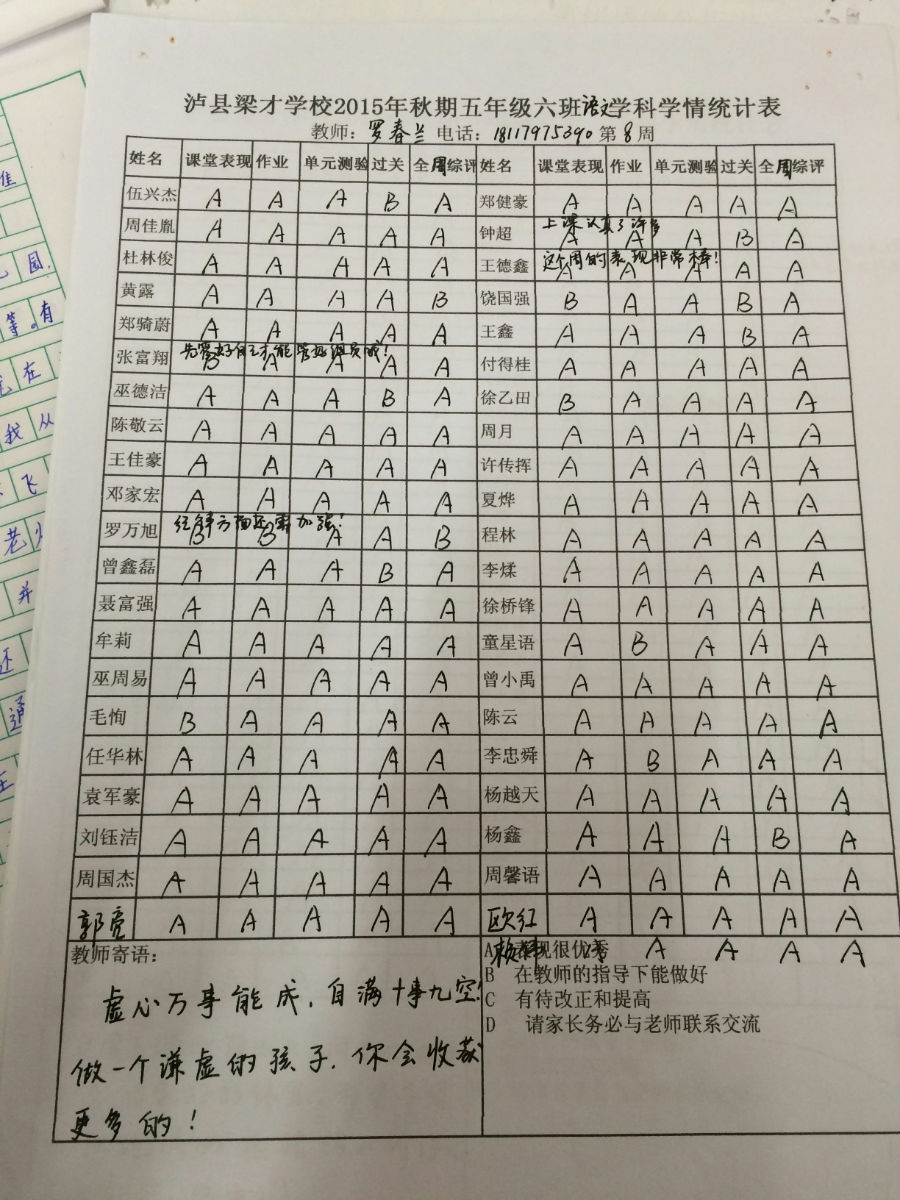 泸县梁才学校2015年秋期五年级六班语文学科学情统计表
教师：罗春兰 电话：18117975390 第8周
姓名 课堂表现 作业 单元测验 过关 全周综评 姓名 课堂表现 作业 单元测验 过关 全周综评
伍兴杰 A A A B A 郑健豪 A A A A A
上课认真了许多
周佳胤 A A A A A 钟超 A A A B A
这个周的表现非常棒！
杜林俊 A A A A A 王德鑫 A A A A A
黄露 A A A A B 饶国强 B A A B A
郑骑蔚 A A A A A 王鑫 A A A B A
先管好自己才能管好组员哦！
张富翔 B A A A A 付得桂 A A A A A
巫德洁 A A A B A 徐乙田 B A A A A
陈敬云 A A A A A 周月 A A A A A
王佳豪 A A A A A 许传挥 A A A A A
邓家宏 A A A A A 夏烨 A A A A A
纪律方面还需加强！
罗万旭 B B A A B 程林 A A A A A
曾鑫磊 A A A B A 李煣 A A A A A
聂富强 A A A A A 徐桥锋 A A A A A
牟莉 A A A A A 童星语 A B A A A
巫周易 A A A A A 曾小禹 A A A A A
毛恂 B A A A A 陈云 A A A A A
任华林 A A A A A 李忠舜 A B A A A
袁军豪 A A A A A 杨越天 A A A A A
刘钰洁 A A A A A 杨鑫 A A A B A
周国杰 A A A A A 周馨语 A A A A A
郭亮 A A A A A 欧红 A A A A A
A A A A A
教师寄语：
虚心万事能成，自满十事九空！
做一个谦虚的孩子，你会收获
更多的！
A 表现很优秀
B 在教师的指导下能做好
C 有待改正和提高
D 请家长务必与老师联系交流
园，
等。有
在
我从
飞
老
并
还
通